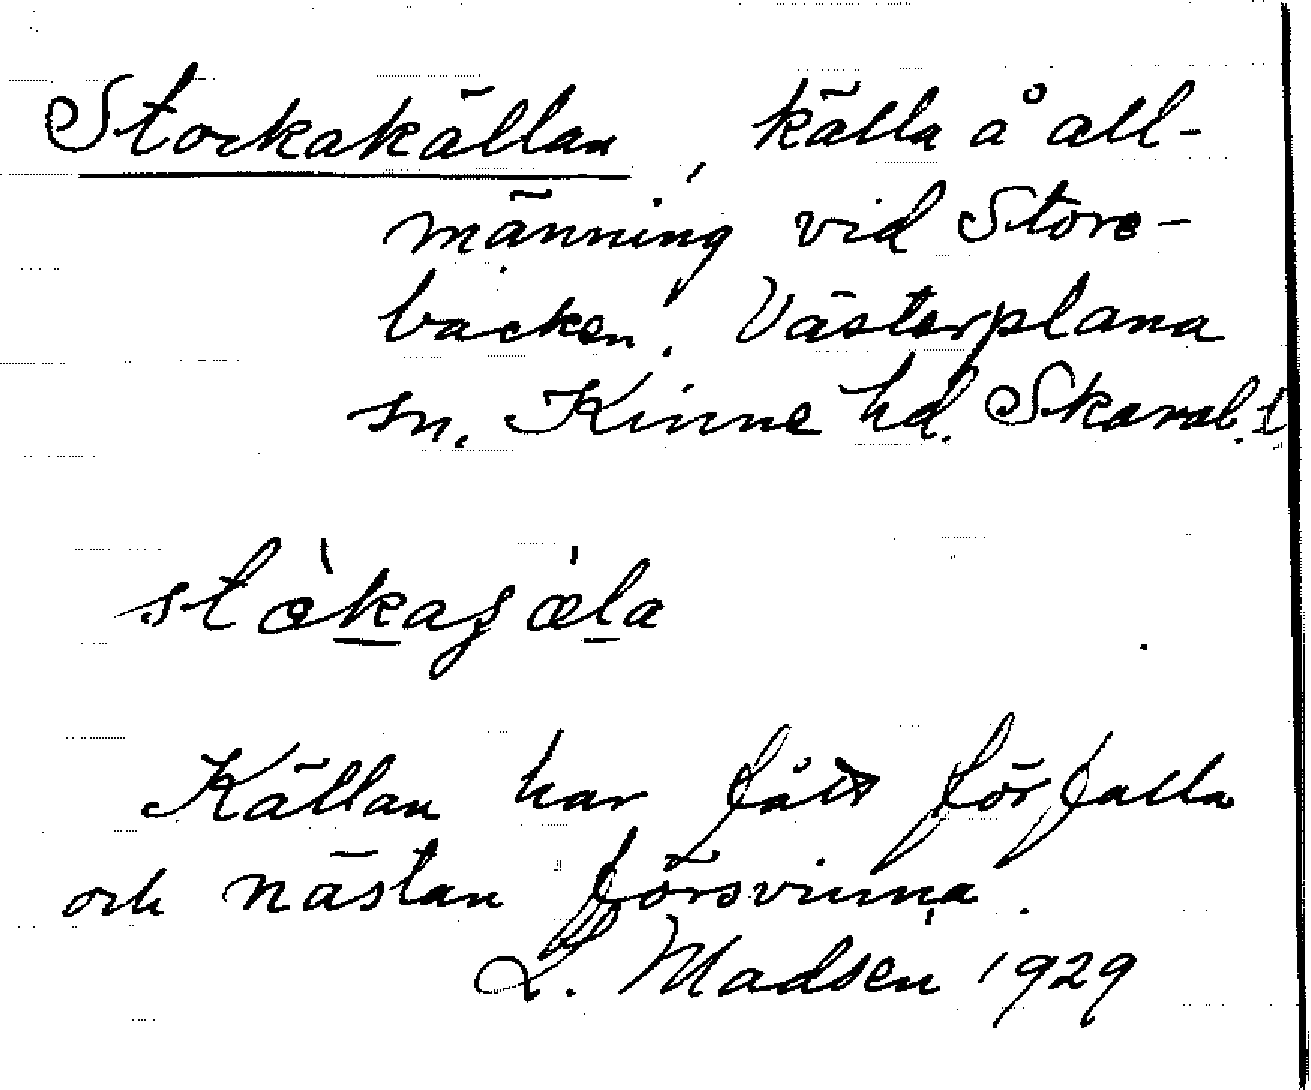 Stockakällan, källa å all-
männing vid Store-
backen. Västerplana
sn. Kinne hd. Skarab. l
Källan har fått förfalla
och nästan försvinna.
L. Madsén 1929